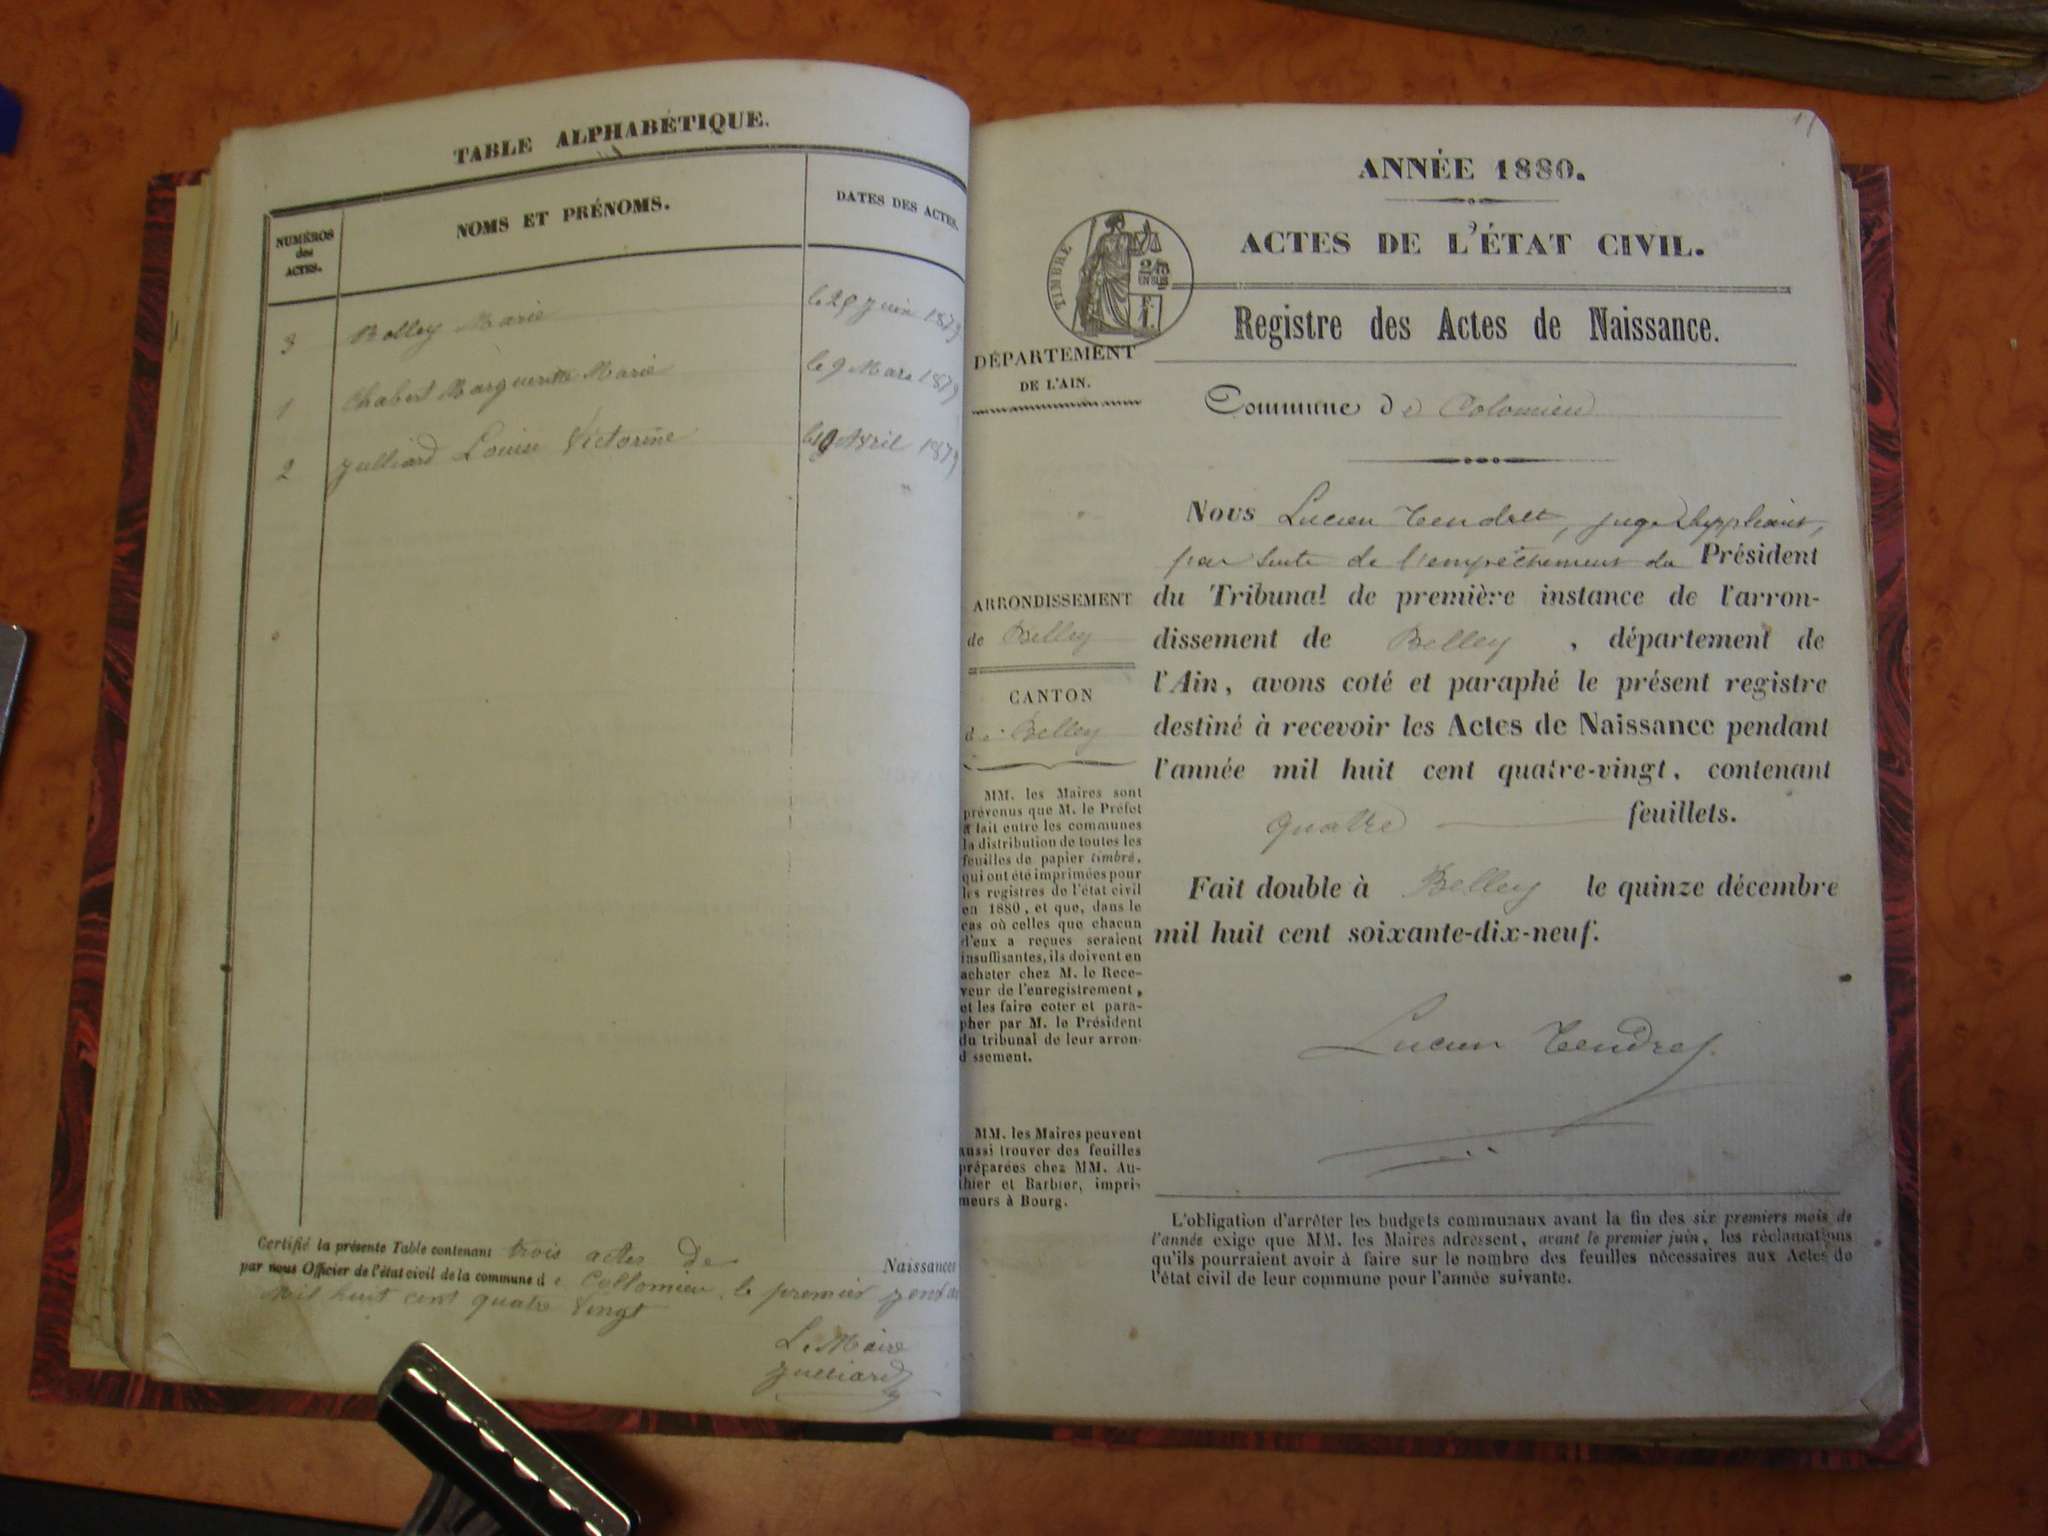 TABLE ALPHABÉTIQUE.
NUMÉROS
des
ACTES.
NOMS ET PRÉNOMS.
DATES DES ACTES.
3 Bolley Marie le 29 Juin 1879
1 Chabert Marguerite Marie le 9 Mars 1879
2 Julliard Louise Victorine Avril 1879
Certifié la présente Table contenant trois actes de Naissances
par nous Officier de l'état civil de la commune de Collomieu, le premier
Mil huit cent quatre Vingt
Le Maire
Julliard
ANNÉE 1880.
ACTES DE L'ÉTAT CIVIL.
TIMBRE
Registre des Actes de Naissance.
DÉPARTEMENT
DE L'AIN.
Commune de Colomieu
ARRONDISSEMENT
de Belley
CANTON
de Belley
MM. les Maires sont
prévenus que M. le Préfet
a fait entre les communes
la distribution de toutes les
feuilles de papier timbré,
qui ont été imprimées pour
les registres de l'état civil
en 1880, et que, dans le
cas où celles que chacun
d'eux a reçues seraient
insuffisantes, ils doivent en
acheter chez M. le Rece-
veur de l'enregistrement,
et les faire coter et para-
pher par M. le Président
du tribunal de leur arron-
dissement.
MM. les Maires peuvent
aussi trouver des feuilles
préparées chez MM. Au-
thier et Barbier, impri-
meurs à Bourg.
Nous Lucien Tendret, juge suppléant,
par suite de l'empêchement du Président
du Tribunal de première instance de l'arron-
dissement de Belley, département de
l'Ain, avons coté et paraphé le présent registre
destiné à recevoir les Actes de Naissance pendant
l'année mil huit cent quatre-vingt, contenant
quatre feuillets.
Fait double à Belley le quinze décembre
mil huit cent soixante-dix-neuf.
Lucien Tendret
L'obligation d'arrêter les budgets communaux avant la fin des six premiers mois de
l'année exige que MM. les Maires adressent, avant le premier juin, les réclamations
qu'ils pourraient avoir à faire sur le nombre des feuilles nécessaires aux Actes de
l'état civil de leur commune pour l'année suivante.